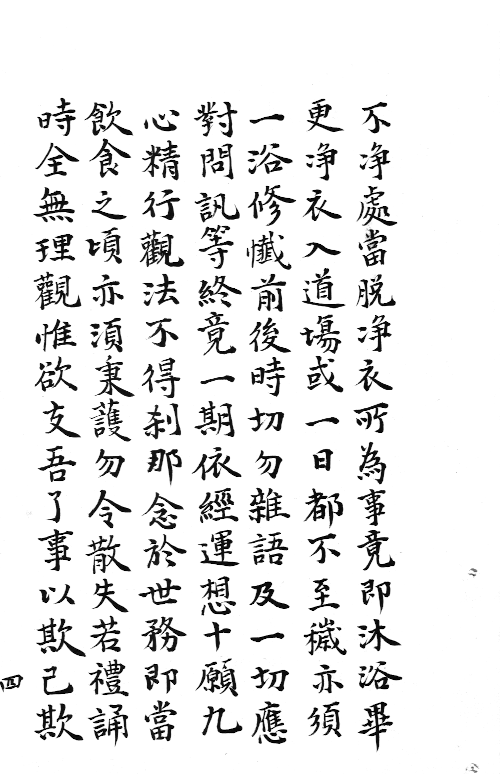 不淨處當脫淨衣所為事竟即沐浴畢
更淨衣入道場或一日都不至穢亦須
一浴修懺前後時切勿雜語及一切應
對問訊等終竟一期依經運想十願九
心精行觀法不得剎那念於世務即當
飲食之頃亦須秉護勿令散失若禮誦
時全無理觀惟欲支吾了事以欺己欺
四